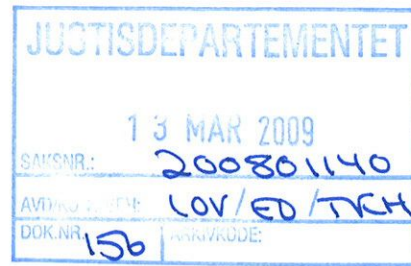 JUSTISDEPARTEMENTET
13 MAR 2009
SAKSNR.: 200801140
LOV/EO/TKH
DOK.NR. 156 ARKIVKODE: